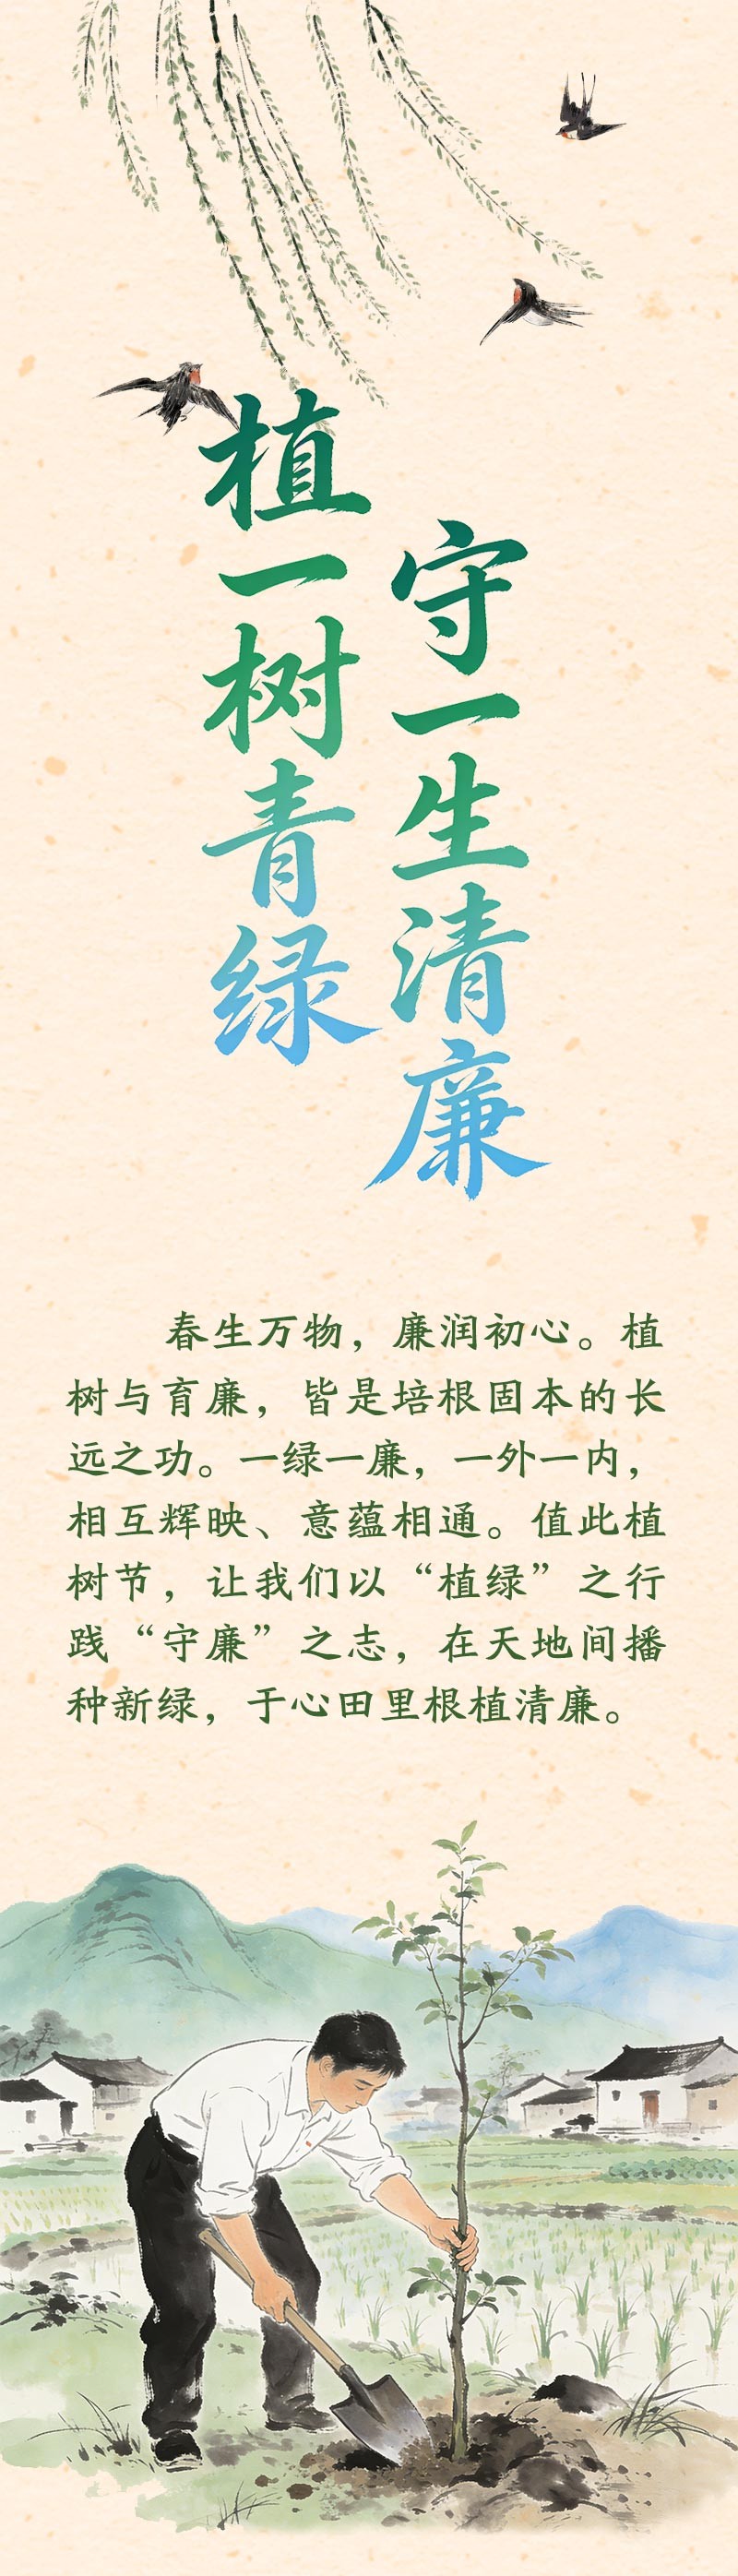 植一树青绿
守一生清廉
春生万物，廉润初心。植
树与育廉，皆是培根固本的长
远之功。一绿一廉，一外一内，
相互辉映、意蕴相通。值此植
树节，让我们以“植绿”之行
践“守廉”之志，在天地间播
种新绿，于心田里根植清廉。